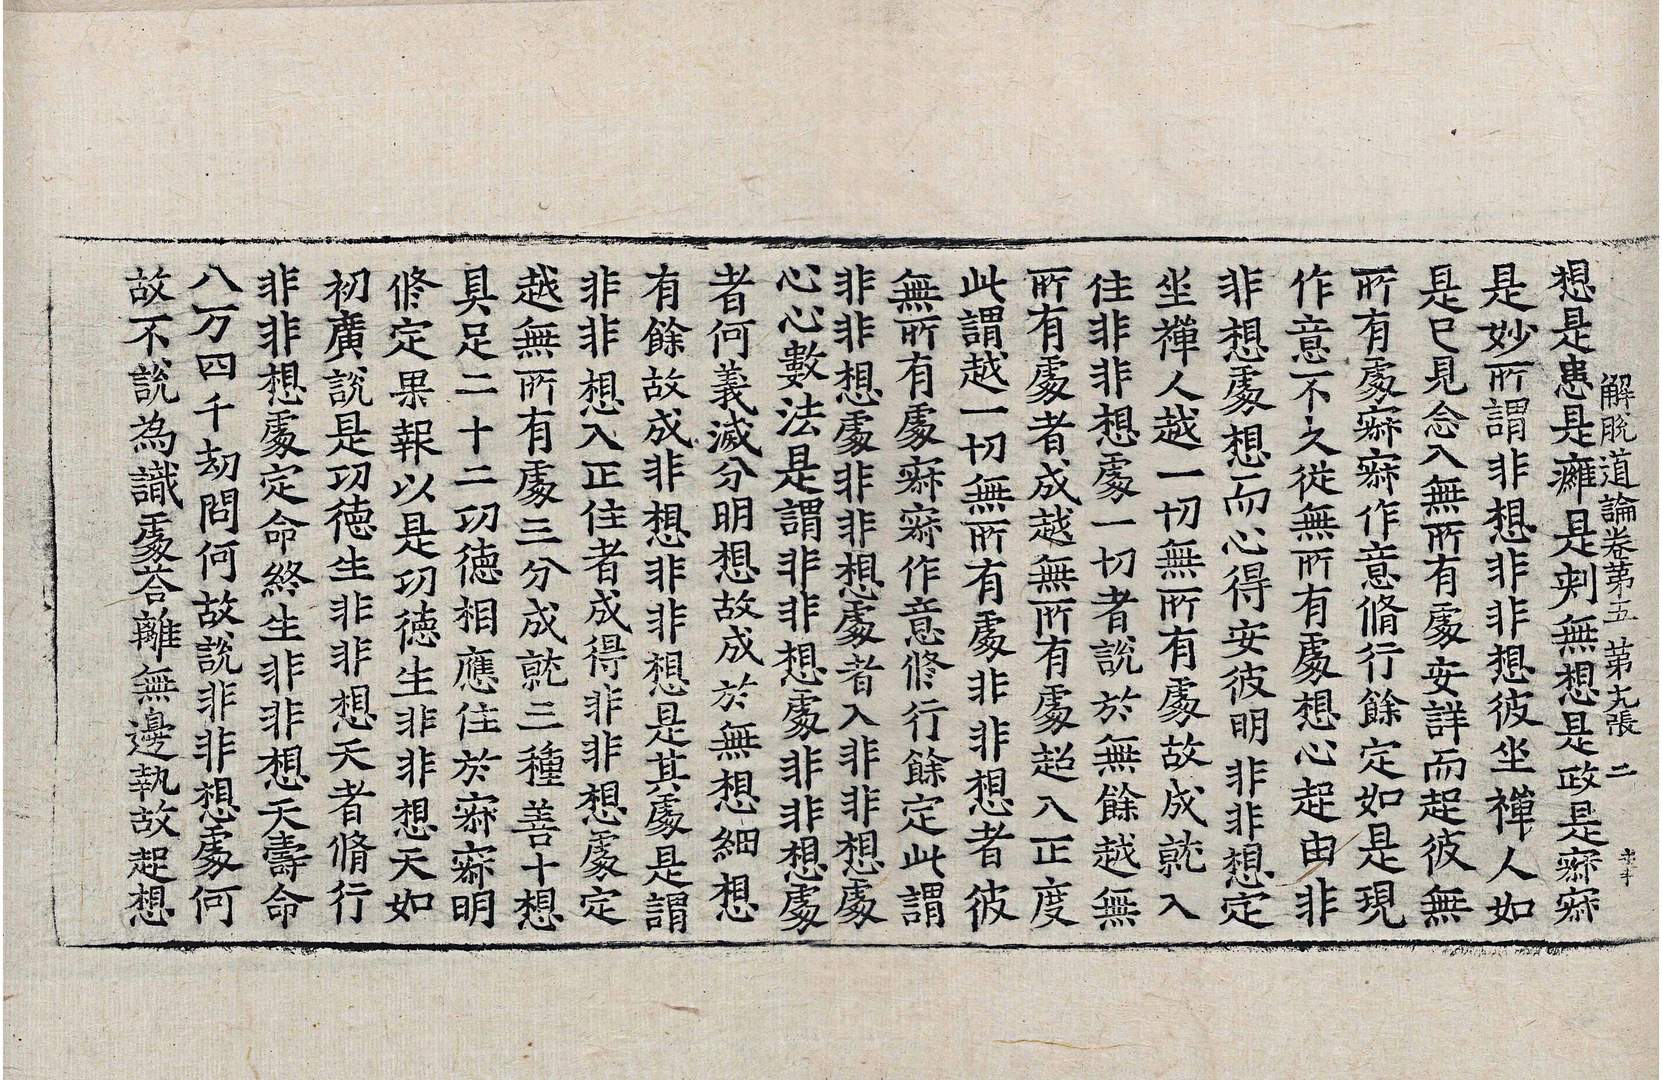 解脫道論卷第五 第九張 二
想是患是癰是刺無想是政是寂寂
是妙所謂非想非非想彼坐禪人如
是已見念入無所有處安詳而起彼無
所有處寂寂作意脩行餘定如是現
作意不久從無所有處想心起由非
非想處想而心得安彼明非非想定
坐禪人越一切無所有處故成就入
住非非想處一切者說於無餘越無
所有處者成越無所有處超入正度
此謂越一切無所有處非非想者彼
無所有處寂寂作意修行餘定此謂
非非想處非非想處者入非非想處
心心數法是謂非非想處非非想處
者何義滅分明想故成於無想細想
有餘故成非想非非想是其處是謂
非非想入正住者成得非非想處定
越無所有處三分成就三種善十想
具足二十二功德相應住於寂寂明
修定果報以是功德生非非想天如
初廣說是功德生非非想天者脩行
非非想處定命終生非非想天壽命
八万四千劫問何故說非非想處何
故不說為識處荅離無邊執故起想